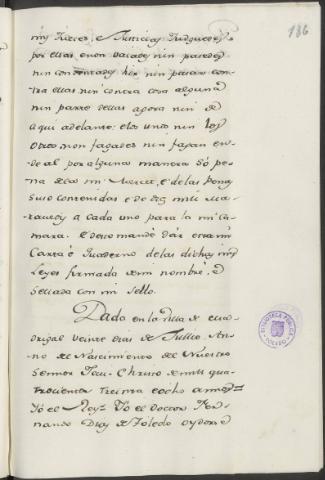 186
mis Jueces, e Justicias Judguedes
por ellas e non vaiades nin pasedes
nin consintades hir nin pasar con-
tra ellas nin contra cosa alguna
nin parte dellas agora nin de
aqui adelante: e los unos nin los
otros non fagades nin fagan en-
de al por alguna manera so pe-
na de la mi Merced, e de las penas
suso contenidas e de diez mill Ma-
ravedis a cada uno para la mi Ca-
mara. E desto mande dar esta mi
Carta e Quaderno de las dichas mis
leyes firmada de mi nombre, e
sellada con mi sello.
Dado en la Villa de Ma-
drigal veinte dias de Jullio An-
no de Nascimiento del Nuestro
Sennor Jesu-Christo de mill qua-
trocientos treinta e ocho annos=
Yo el Rey= Yo el Doctor Fer-
nando Diaz de Toledo oydor e
BIBLIOTECA PUBLICA
TOLEDO